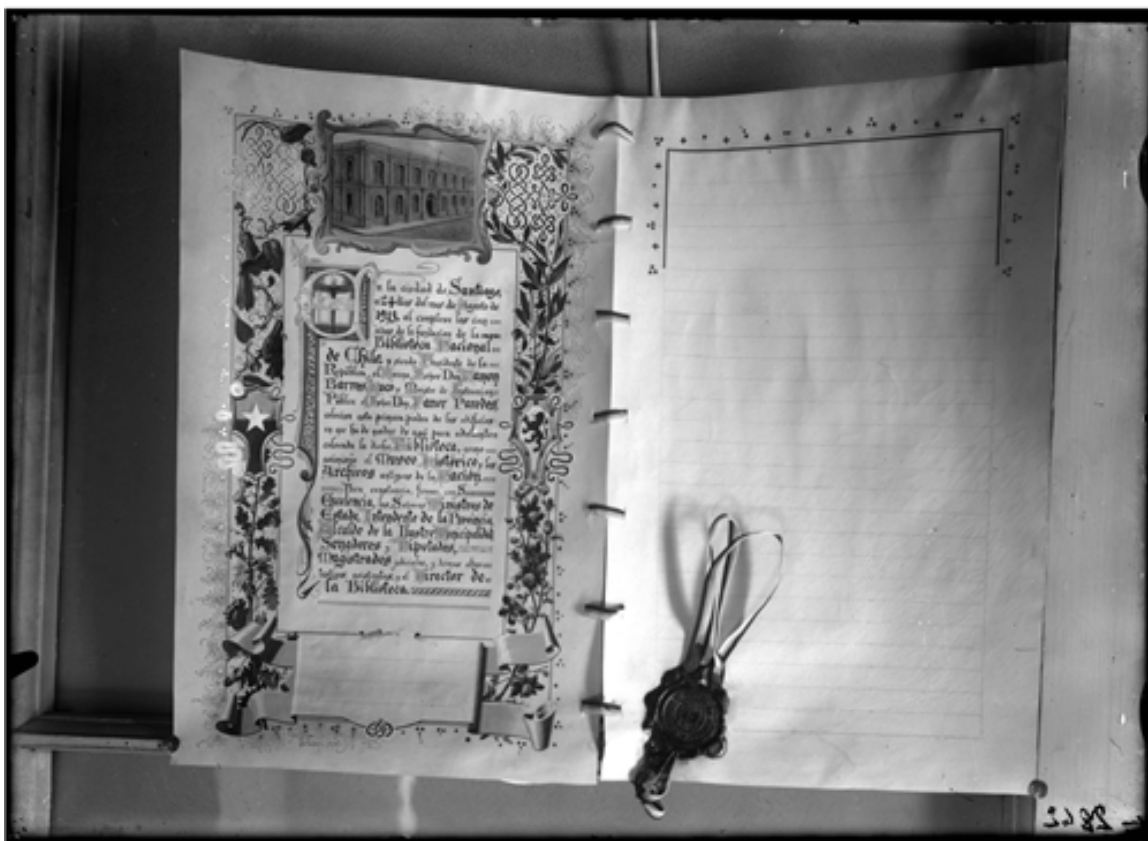 En la ciudad de Santiago,
a 24 dias del mes de Agosto de
1913, al cumplirse los cien
años de la fundacion de la
Biblioteca Nacional
de Chile, y siendo Presidente de la
República, el Señor Don Ramon
Barros Luco y Ministro de Instruccion
Pública el Señor Don Fanor Paredes,
colocan esta primera piedra de los edificios
en que ha de quedar de aquí para adelante
colocada la dicha Biblioteca, como
asimismo el Museo Histórico, los
Archivos antiguos de la Nacion.
Para constancia, firman, con Su
Excelencia, los Señores Ministros de
Estado, Intendente de la Provincia,
Alcalde de la Ilustre Municipalidad,
Senadores y Diputados,
Magistrados judiciales, y demas
y el Director de
la Biblioteca.
2842